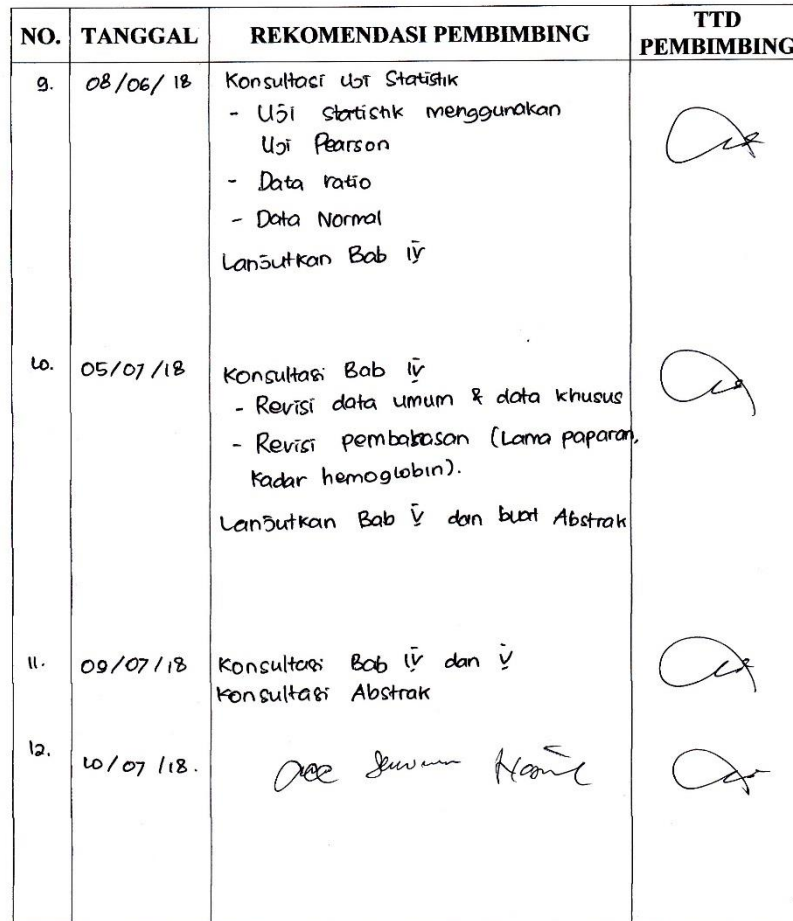 NO. TANGGAL REKOMENDASI PEMBIMBING TTD PEMBIMBING
9. 08/06/18 Konsultasi Uji Statistik
- Uji statistik menggunakan
Uji Pearson
- Data ratio
- Data Normal
Lanjutkan Bab IV
10. 05/07/18 Konsultasi Bab IV
- Revisi data umum & data khusus
- Revisi pembahasan (Lama paparan,
Kadar hemoglobin).
Lanjutkan Bab V dan buat Abstrak
11. 09/07/18 Konsultasi Bab IV dan V
Konsultasi Abstrak
12. 10/07/18. Acc Seminar Hasil